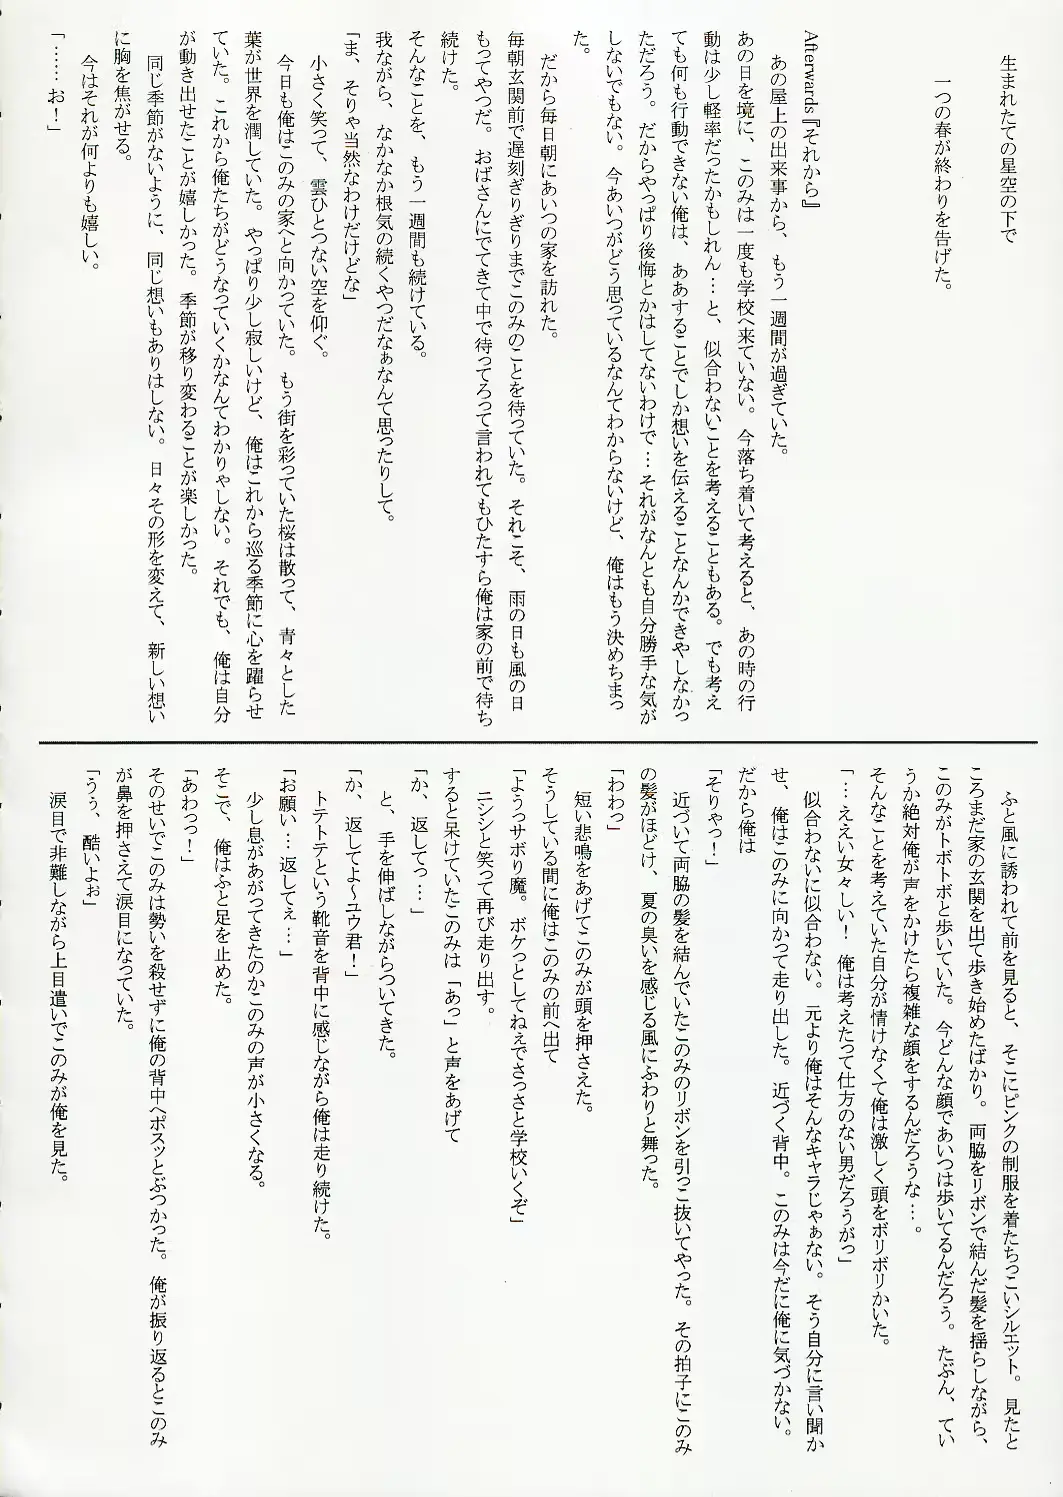 生まれたての星空の下で
一つの春が終わりを告げた。
Afterwards『それから』
あの屋上の出来事から、もう一週間が過ぎていた。
あの日を境に、このみは一度も学校へ来ていない。今落ち着いて考えると、あの時の行
動は少し軽率だったかもしれん…と、似合わないことを考えることもある。でも考え
ても何も行動できない俺は、ああすることでしか想いを伝えることなんかできやしなかっ
ただろう。だからやっぱり後悔とかはしてないわけで…それがなんとも自分勝手な気が
しないでもない。今あいつがどう思っているなんてわからないけど、俺はもう決めちまっ
た。
だから毎日朝にあいつの家を訪れた。
毎朝玄関前で遅刻ぎりぎりまでこのみのことを待っていた。それこそ、雨の日も風の日
もってやつだ。おばさんにでてきて中で待ってろって言われてもひたすら俺は家の前で待ち
続けた。
そんなことを、もう一週間も続けている。
我ながら、なかなか根気の続くやつだなぁなんて思ったりして。
「ま、そりゃ当然なわけだけどな」
小さく笑って、雲ひとつない空を仰ぐ。
今日も俺はこのみの家へと向かっていた。もう街を彩っていた桜は散って、青々とした
葉が世界を潤していた。やっぱり少し寂しいけど、俺はこれから巡る季節に心を躍らせ
ていた。これから俺たちがどうなっていくかなんてわかりゃしない。それでも、俺は自分
が動き出せたことが嬉しかった。季節が移り変わることが楽しかった。
同じ季節がないように、同じ想いもありはしない。日々その形を変えて、新しい想い
に胸を焦がせる。
今はそれが何よりも嬉しい。
「……お！」
ふと風に誘われて前を見ると、そこにピンクの制服を着たちっこいシルエット。見たと
ころまだ家の玄関を出て歩き始めたばかり。両脇をリボンで結んだ髪を揺らしながら、
このみがトボトボと歩いていた。今どんな顔であいつは歩いてるんだろう。たぶん、てい
うか絶対俺が声をかけたら複雑な顔をするんだろうな…。
そんなことを考えていた自分が情けなくて俺は激しく頭をボリボリかいた。
「…ええい女々しい！俺は考えたって仕方のない男だろうがっ」
似合わないに似合わない。元より俺はそんなキャラじゃぁない。そう自分に言い聞か
せ、俺はこのみに向かって走り出した。近づく背中。このみは今だに俺に気づかない。
だから俺は
「そりゃっ！」
近づいて両脇の髪を結んでいたこのみのリボンを引っこ抜いてやった。その拍子にこのみ
の髪がほどけ、夏の臭いを感じる風にふわりと舞った。
「わわっ」
短い悲鳴をあげてこのみが頭を押さえた。
そうしている間に俺はこのみの前へ出て
「ようっサボり魔。ボケっとしてねぇでさっさと学校いくぞ」
ニシシと笑って再び走り出す。
すると呆けていたこのみは「あっ」と声をあげて
「か、返してっ…」
と、手を伸ばしながらついてきた。
「か、返してよ～ユウ君！」
トテトテという靴音を背中に感じながら俺は走り続けた。
「お願い…返してぇ…」
少し息があがってきたのかこのみの声が小さくなる。
そこで、俺はふと足を止めた。
「あわっっ！」
そのせいでこのみは勢いを殺せずに俺の背中へボスッとぶつかった。俺が振り返るとこのみ
が鼻を押さえて涙目になっていた。
「うぅ、酷いよぉ」
涙目で非難しながら上目遣いでこのみが俺を見た。